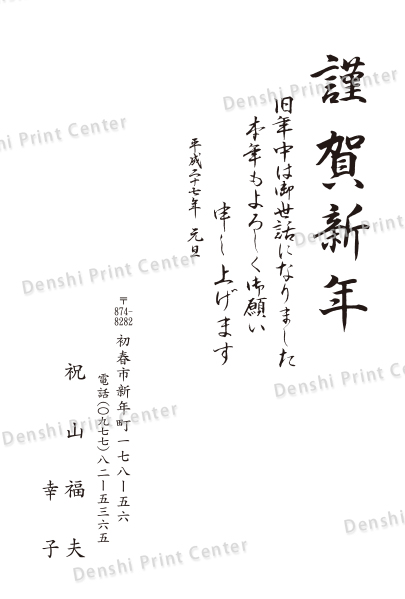 謹賀新年
旧年中は御世話になりました
本年もよろしく御願い
申し上げます
平成二十七年 元旦
〒874-8282 初春市新年町一七八ー五六
電話(〇九七七)八二ー五三六五
祝山福夫
幸子
Denshi Print Center
Denshi Print Center
Denshi Print Center
Denshi Print Center
Denshi Print Center
Denshi Print Center
Denshi Print Center
Denshi Print